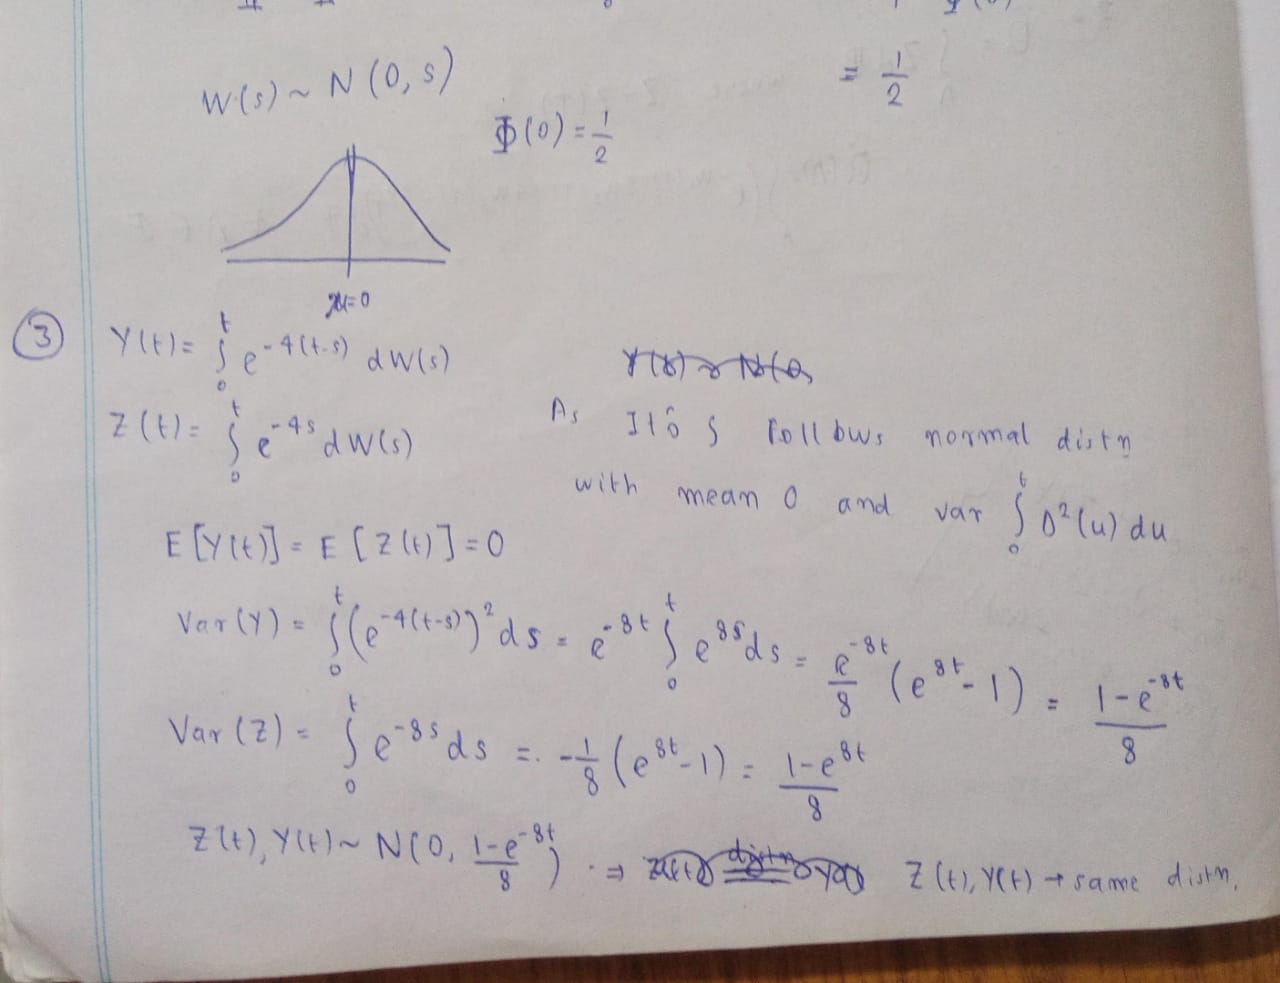 W(s) ~ N(0, s)
= 1/2
Φ(0) = 1/2
x=0
③ Y(t) = ∫₀ᵗ e^{-4(t-s)} dW(s)
Z(t) = ∫₀ᵗ e^{-4s} dW(s)
As Itô ∫ follows normal distn
with mean 0 and var ∫₀ᵗ Δ²(u) du
E[Y(t)] = E[Z(t)] = 0
Var(Y) = ∫₀ᵗ (e^{-4(t-s)})² ds = e^{-8t} ∫₀ᵗ e^{8s} ds = e^{-8t}/8 (e^{8t} - 1) = (1 - e^{-8t})/8
Var(Z) = ∫₀ᵗ e^{-8s} ds = -1/8 (e^{8t} - 1) = (1 - e^{8t})/8
Z(t), Y(t) ~ N(0, (1 - e^{-8t})/8) ⇒ Z(t), Y(t) → same distn.